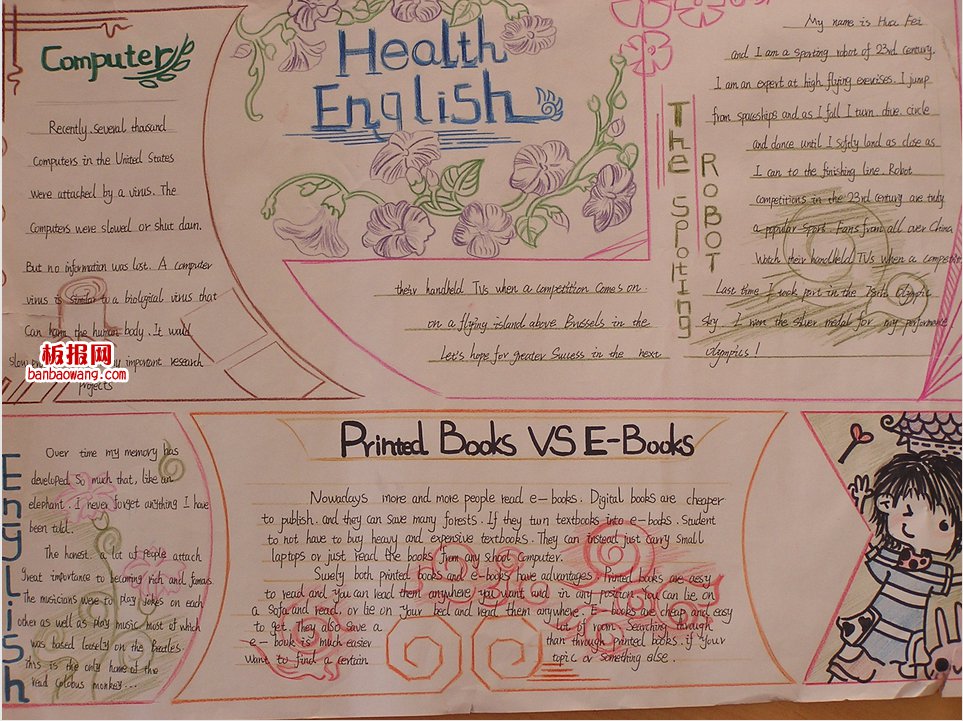 Computer
Recently. several thousand
Computers in the United States
were attacked by a virus. The
Computers were slowed or shut down.
But no information was lost. A computer
virus is similar to a biolygial virus that
Can harm the human body. It would
slow important research
projects
板报网
banbaowang.com
Health
English
their handheld TVs when a competition Comes on
on a flying island above Brussels in the
Let's hope for greater Success in the next
The Spolting
ROBOT
My name is Hua Fei
and I am a sporting robot of 23rd century.
I am an expert at high flying exercises. I jump
from spaceships and as I fall I turn. dive. circle
and dance until I softly land as close as
I can to the finishing line. Robot
competitions in the 23rd century are truly
a popular Sport. Fans from all over China
Watch their handheld TVs when a competition
Last time I took part in the Olympic
sky. I won the silver medal for my performance
olympics!
English
Over time my memory has
developed So much that, like an
elephant. I never forget anything I have
been told.
The honest. a lot of people attach
great importance to becoming rich and famous.
The musicians were to play jokes on each
other as well as play music most of which
was based loosely on the Beatles.
This is the only home of the
read Colobus monkey...
Printed Books VS E-Books
Nowadays more and more people read e-books. Digital books are cheaper
to publish. and they can save many forests. If they turn textbooks into e-books. Student
to not have to buy heavy and expensive textbooks. They can instead just carry small
laptops or just read the books from any shool Computer.
Suely both printed books and e-books have advantages. Printed books are aesy
to read and you can lead them anywhere you want and in any position. You can lie on
a Sofa and read, or lie on your bed and lead them anywhere. E-books are cheap and easy
to get. They also save a lot of room. Searching through
e-book is much easier than through printed books. if your
want to find a certain topic or Something else.